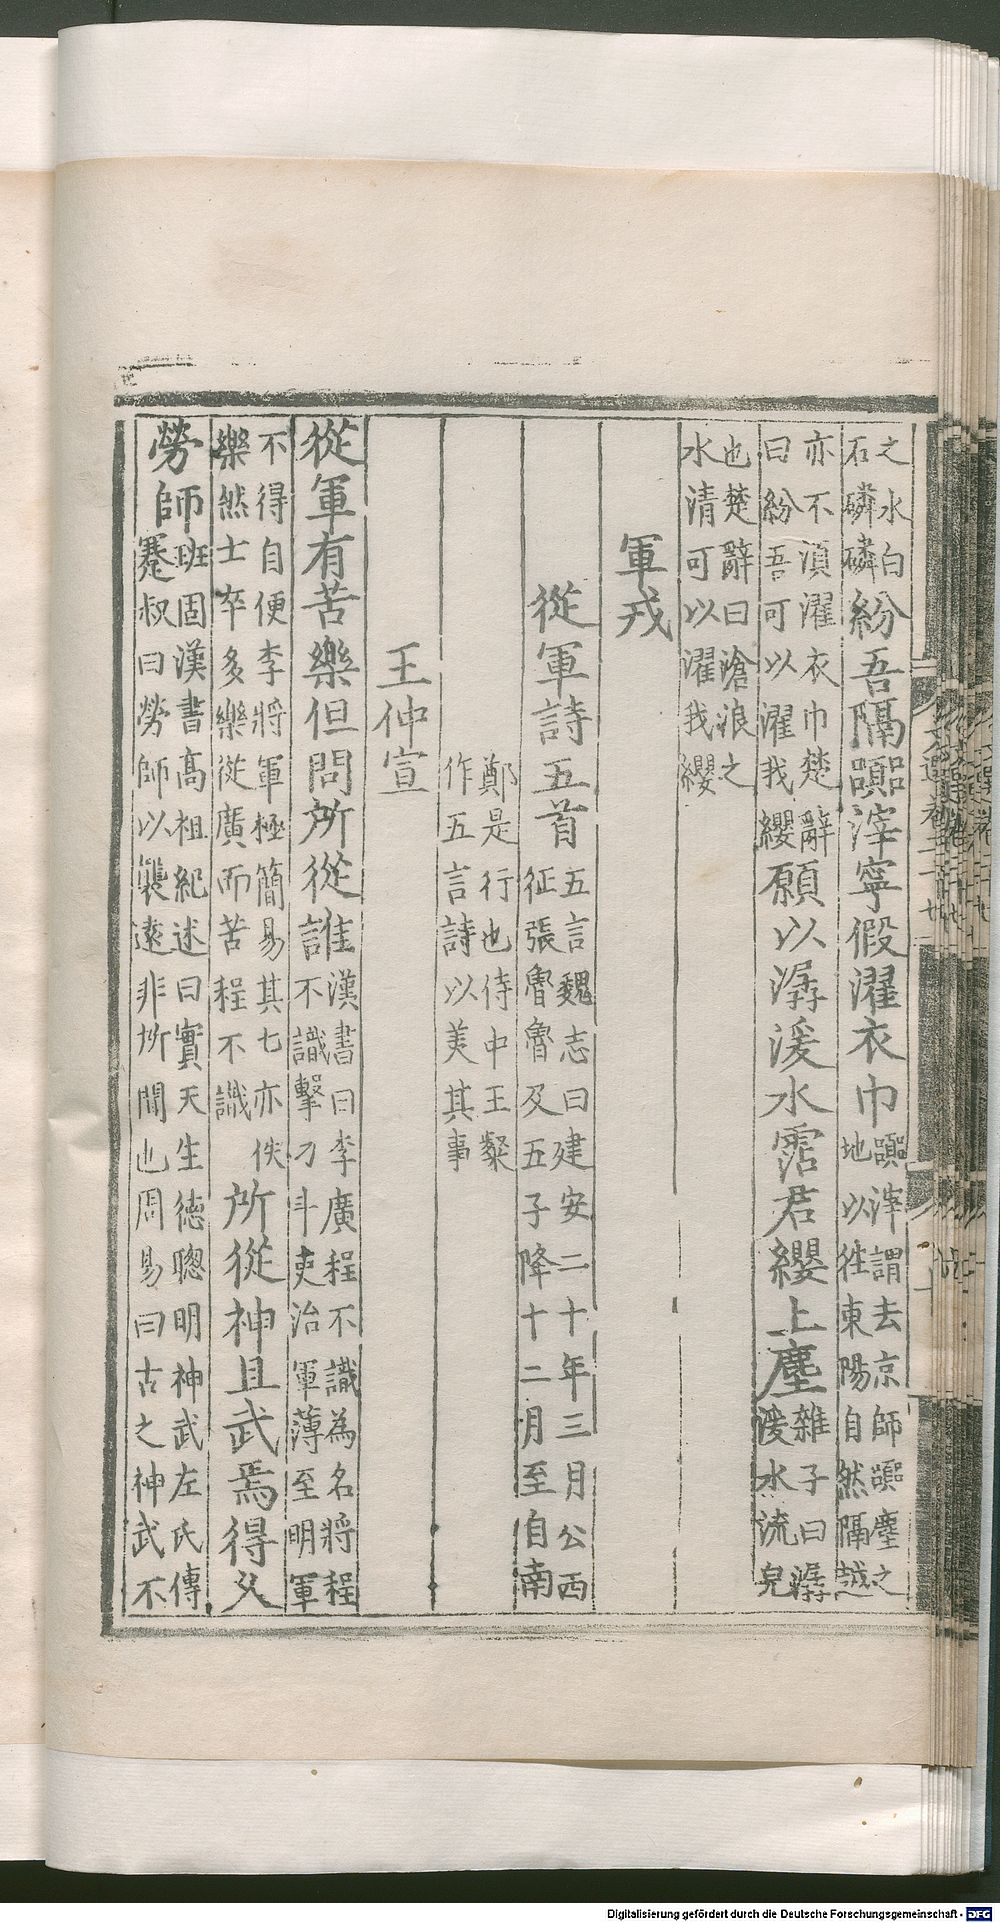 之水白石磷磷紛吾隔囂滓寧假濯衣巾囂滓謂去京師囂塵之地以徃東陽自然隔越
亦不湏濯衣巾楚辭曰紛吾可以濯我纓願以潺湲水霑君纓上塵雜子曰潺湲水流皃
也楚辭曰滄浪之水清可以濯我纓
軍戎
從軍詩五首五言魏志曰建安二十年三月公西征張魯魯及五子降十二月至自南
鄭是行也侍中王粲作五言詩以美其事
王仲宣
從軍有苦樂但問所從誰漢書曰李廣程不識為名將程不識擊刁斗吏治軍薄至明軍
不得自便李將軍極簡易其士亦佚樂然士卒多樂從廣而苦程不識所從神且武焉得久
勞師班固漢書髙祖紀述曰實天生德聦明神武左氏傳蹇叔曰勞師以襲遠非所聞也周易曰古之神武不
Digitalisierung gefördert durch die Deutsche Forschungsgemeinschaft - DFG